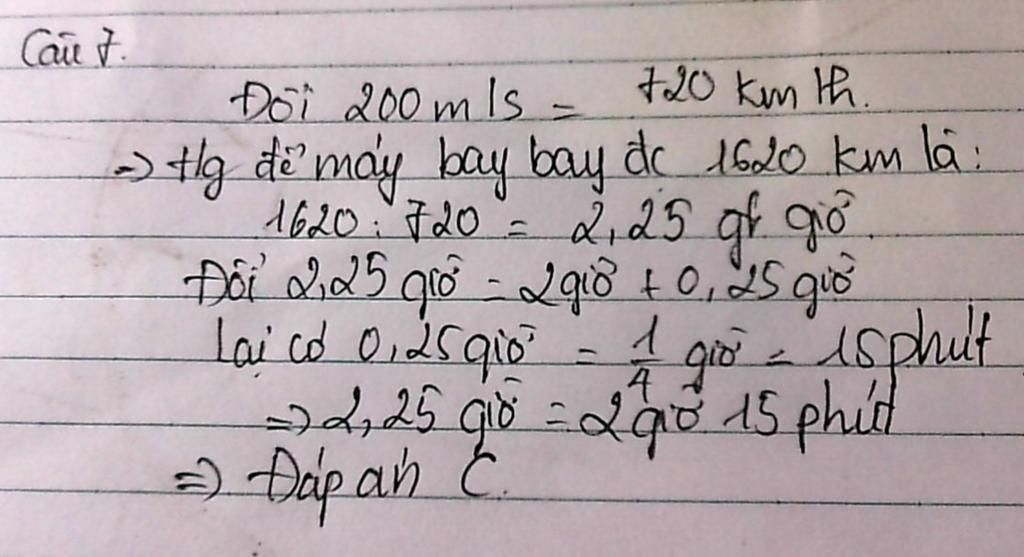 Câu 7.
Đổi 200 m/s = 720 km/h.
=> tg để máy bay bay đc 1620 km là:
1620 : 720 = 2,25 giờ.
Đổi 2,25 giờ = 2 giờ + 0,25 giờ
Lại có 0,25 giờ = 1/4 giờ = 15 phút
=> 2,25 giờ = 2 giờ 15 phút
=> Đáp án C.